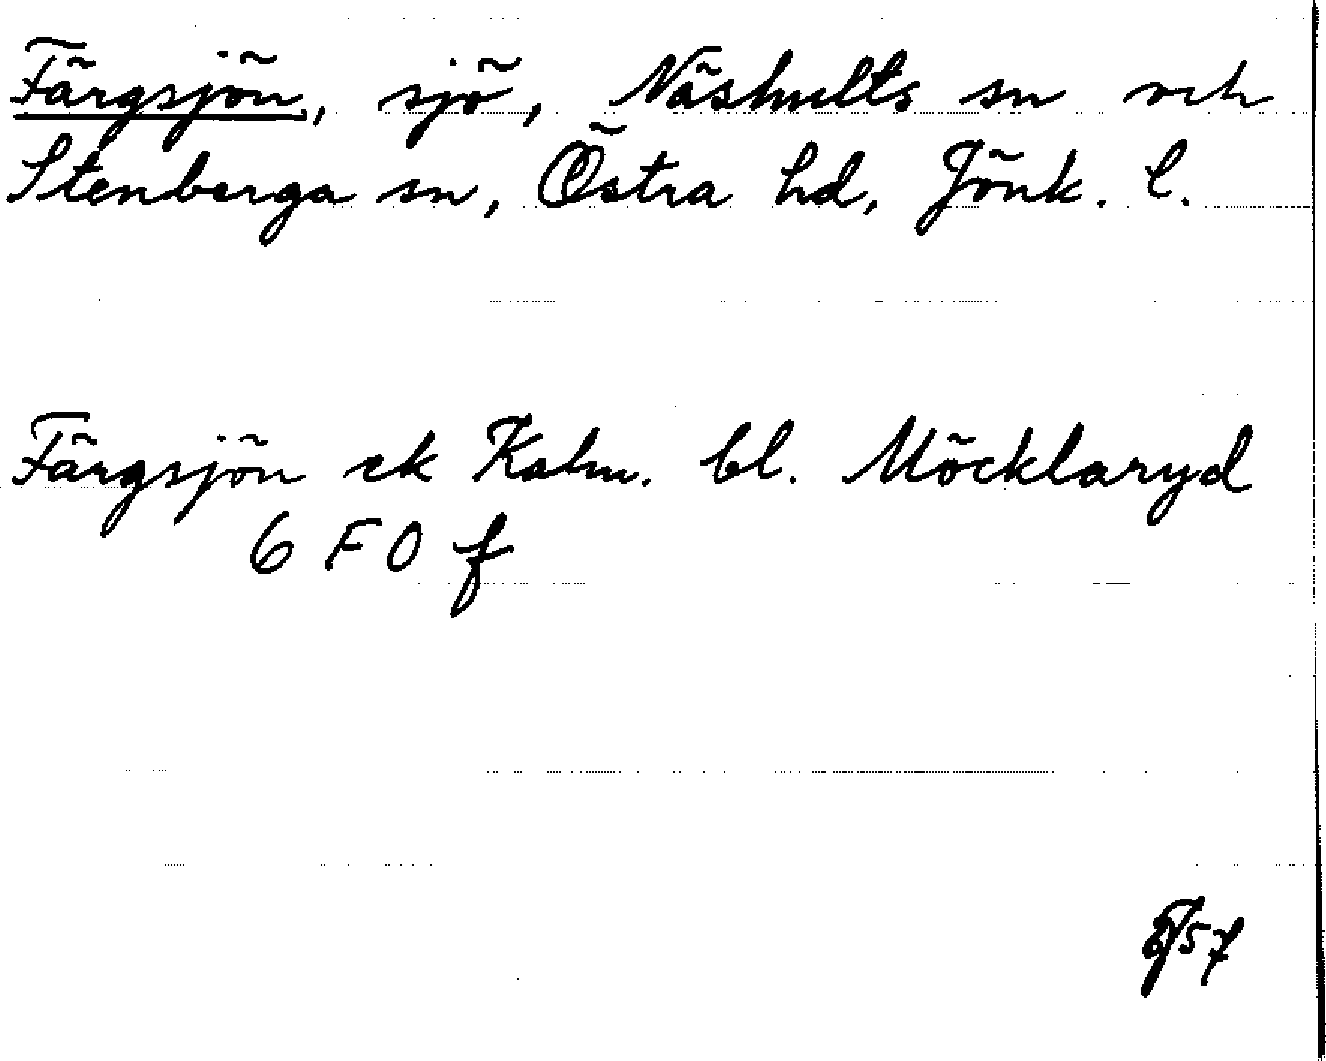 Färgsjön, sjö, Näshults sn och
Stenberga sn, Östra hd, Jönk. l.
Färgsjön ek Kalm. bl. Möcklaryd
6 F 0 f
57